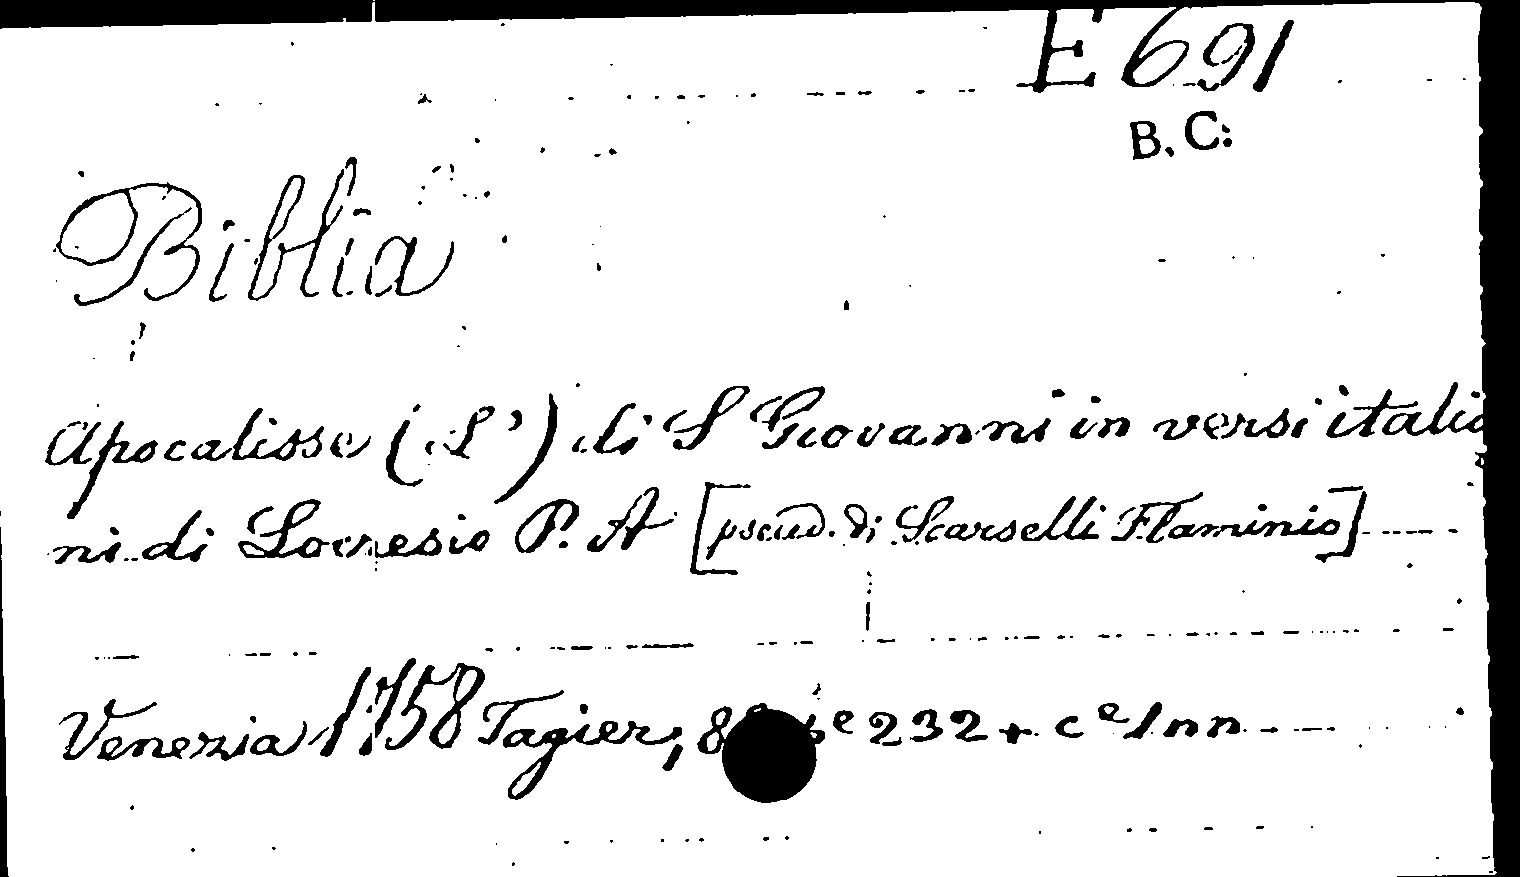 E 691
B. C.
Biblia
Apocalisse (L') di S Giovanni in versi italia
ni di Locresio P. A [pseud. di Scarselli Flaminio]
Venezia 1758 Tagier, 8º 232 + cᵉ 1 nn